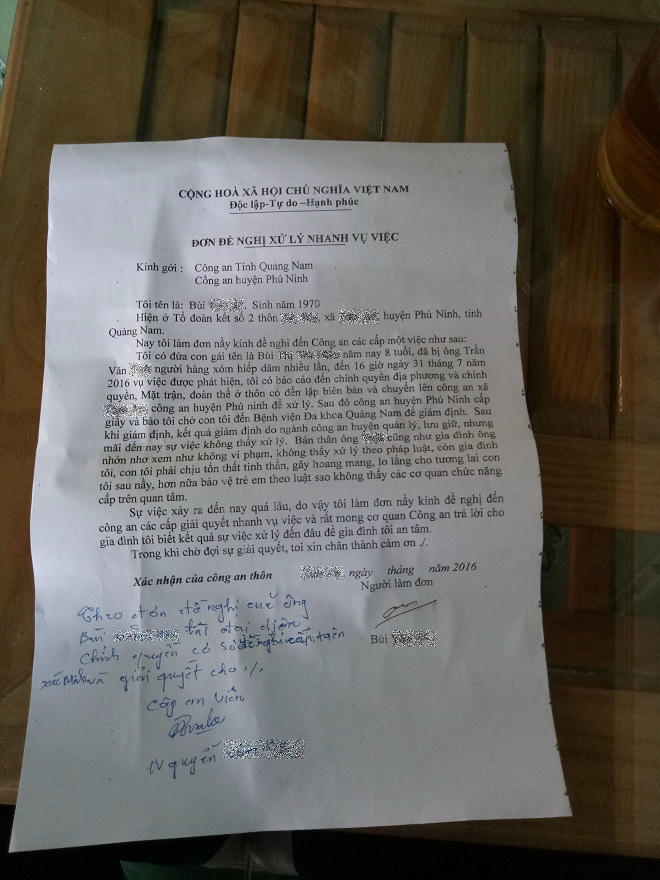 CỘNG HOÀ XÃ HỘI CHỦ NGHĨA VIỆT NAM
Độc lập-Tự do –Hạnh phúc
ĐƠN ĐỀ NGHỊ XỬ LÝ NHANH VỤ VIỆC
Kính gởi : Công an Tỉnh Quảng Nam
Công an huyện Phú Ninh
Tôi tên là: Bùi Sinh năm 1970
Hiện ở Tổ đoàn kết số 2 thôn xã huyện Phú Ninh, tỉnh
Quảng Nam.
Nay tôi làm đơn nầy kính đề nghi đến Công an các cấp một việc như sau:
Tôi có đứa con gái tên là Bùi năm nay 8 tuổi, đã bị ông Trần
Văn người hàng xóm hiếp dâm nhiều lần, đến 16 giờ ngày 31 tháng 7 năm
2016 vụ việc được phát hiện, tôi có báo cáo đến chính quyền địa phương và chính
quyền, Mặt trận, đoàn thể ở thôn có đến lập biên bản và chuyển lên công an xã
công an huyện Phú ninh để xử lý. Sau đó công an huyện Phú Ninh cấp
giấy và bảo tôi chở con tôi đến Bệnh viện Đa khoa Quảng Nam để giám định. Sau
khi giám định, kết quả giám định do ngành công an huyện quản lý, lưu giữ, nhưng
mãi đến nay sự việc không thấy xử lý. Bản thân ông cũng như gia đình ông
nhởn nhơ xem như không vi phạm, không thấy xử lý theo pháp luật, còn gia đình
tôi, con tôi phải chịu tổn thất tinh thần, gây hoang mang, lo lắng cho tương lai con
tôi sau nầy, hơn nữa bảo vệ trẻ em theo luật sao không thấy các cơ quan chức năng
cấp trên quan tâm.
Sự việc xảy ra đến nay quá lâu, do vậy tôi làm đơn nầy kính đề nghị đến
công an các cấp giải quyết nhanh vụ việc và rất mong cơ quan Công an trả lời cho
gia đình tôi biết kết quả sự việc xử lý đến đâu để gia đình tôi an tâm.
Trong khi chờ đợi sự giải quyết, toi xin chân thành cảm ơn ./.
Xác nhận của công an thôn ngày tháng năm 2016
Người làm đơn
Theo đơn đề nghị của ông
Bùi
Chính quyền có
giải quyết cho ./.
Công an viên
Bùi